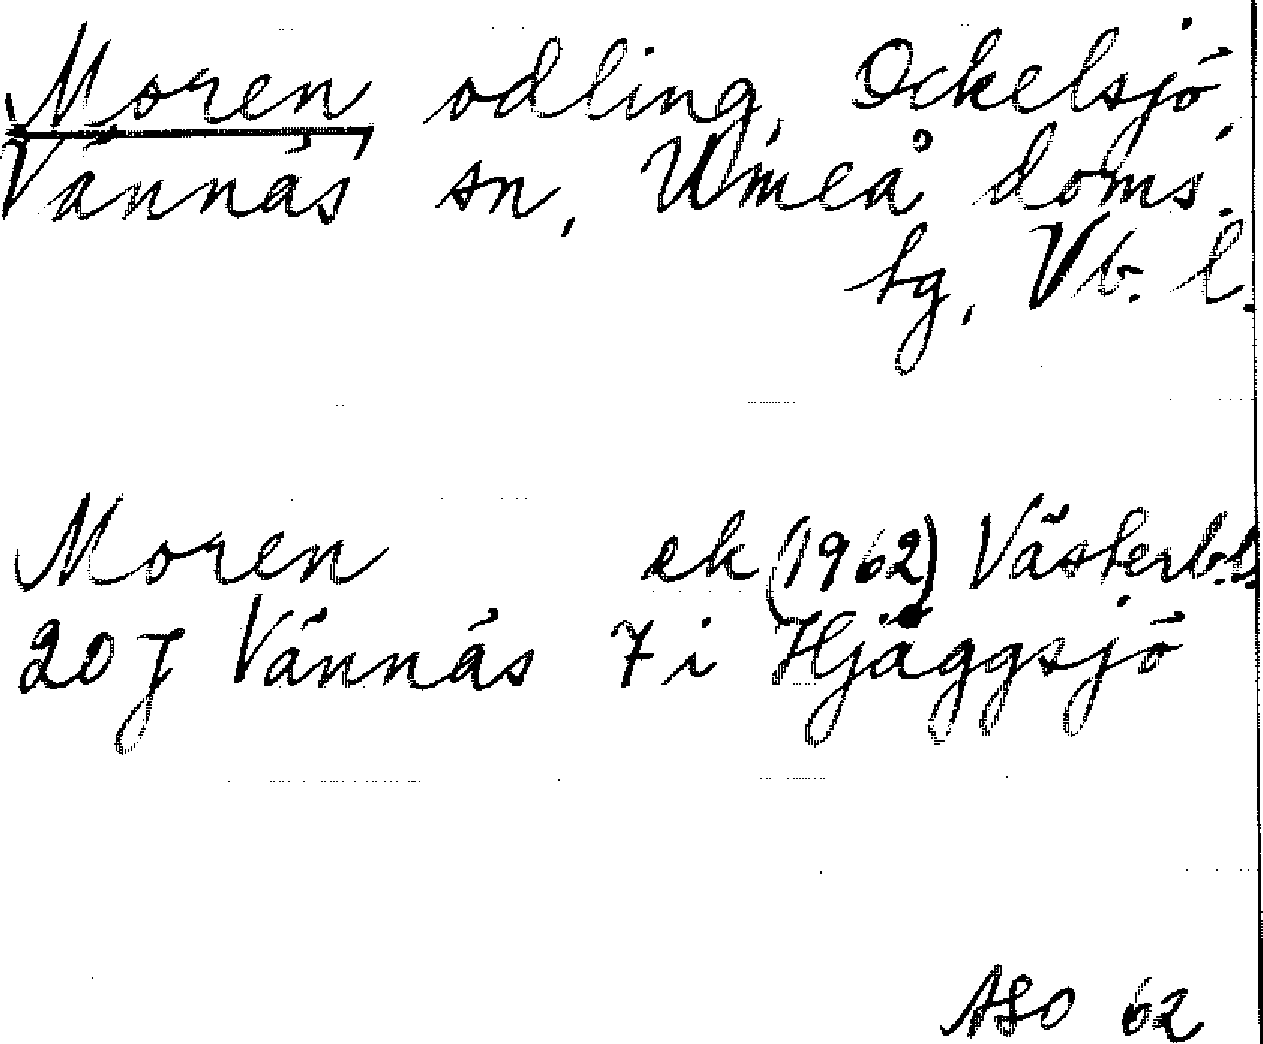 Moren, odling, Ockelsjö,
Vännäs sn, Umeå doms.
tg, Vb. l.
Moren ek (1962) Västerb.l.
20 J Vännäs 7 i Hjäggsjö
ASO 62